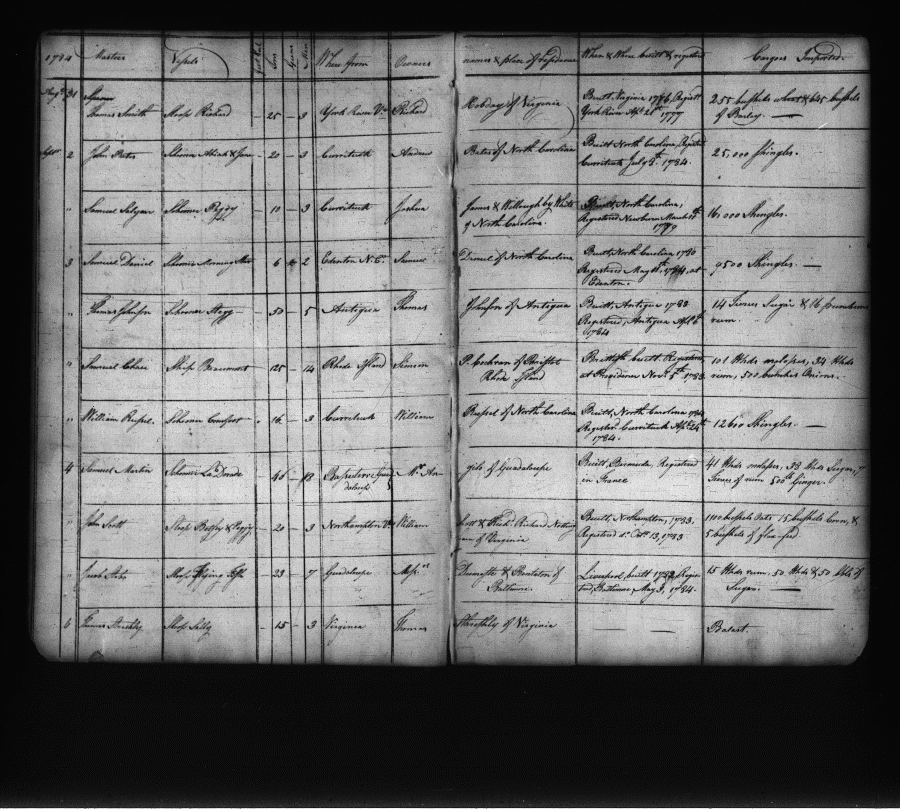 1784 Masters Vessels Tons Guns Men Where from Owners names & place of Residence When & Where built & registered Cargoes Imported.
Augt 31 Thomas Smith Sloop Richard — 25 — 3 York River Va Richard Hobday of Virginia Built Virginia 1776, Registd 255 bushels wheat & 645 bushels
York River Apl 21st 1777 of Barley. —
Sept 2 John Bates Schooner Abiah & Jane — 20 — 3 Currituck Andrew Bates of North Carolina Built North Carolina, Registd 25,000 Shingles.
Currituck July 9th 1784.
" Samuel Salyear Schooner Peggy — 10 — 3 Currituck Joshua James & Willoughby White Built, North Carolina, 16,000 Shingles.
of North Carolina. Registered Newbern March
3 Samuel Daniel Schooner Morning Star 6 — 2 Edenton N.C. Samuel Daniel of North Carolina Built, North Carolina 1780 9500 Shingles. —
Registered May 1784, at
Edenton.
" Thomas Johnson Schooner — 50 — 5 Antigua Thomas Johnson of Antigua Built, Antigua 1783 14 Tierces Sugar & 16 puncheons
Registered, Antigua Apl 6th rum.
1784
" Samuel Chace Ship Beaumont — 125 — 14 Rhode Island Simeon Potter of Bristol British built. Registered, 101 Hhds molasses, 34 Hhds
Rhode Island at Providence Novr 5th 1783. rum, 500 bunches Onions.
" William Russel Schooner Comfort " 16 — 3 Currituck William Russel of North Carolina Built, North Carolina 1784 12600 Shingles. —
Registd Currituck Apl 24th
1784.
4 Samuel Martin Schooner La 46 — 13 Basseterre Guadaloupe Mr. of Guadaloupe Built, Bermuda, Registered 41 Hhds molasses, 33 Hhds Sugar, 7
in France Tierces of rum 500 lb Ginger.
" John Scott Sloop Betsey & Peggy — 20 — 3 Northampton Va William Scott & Richd. Richard Nottingham Built, Northampton, 1783, 1100 bushels Oats 15 bushels Corn, &
of Virginia Registered do. Octr. 13, 1783 5 bushels of flax-seed
" Jacob Sloop Flying Fish — 23 — 7 Guadaloupe Messrs Baltimore. Liverpool built 1782, Registered, 15 Hhds rum. 50 Hhds & 50 bbls of
Baltimore, May 3, 1784. Sugar. —
6 Thomas Sloop Sally — 15 — 3 Virginia Thomas of Virginia — — Balast.